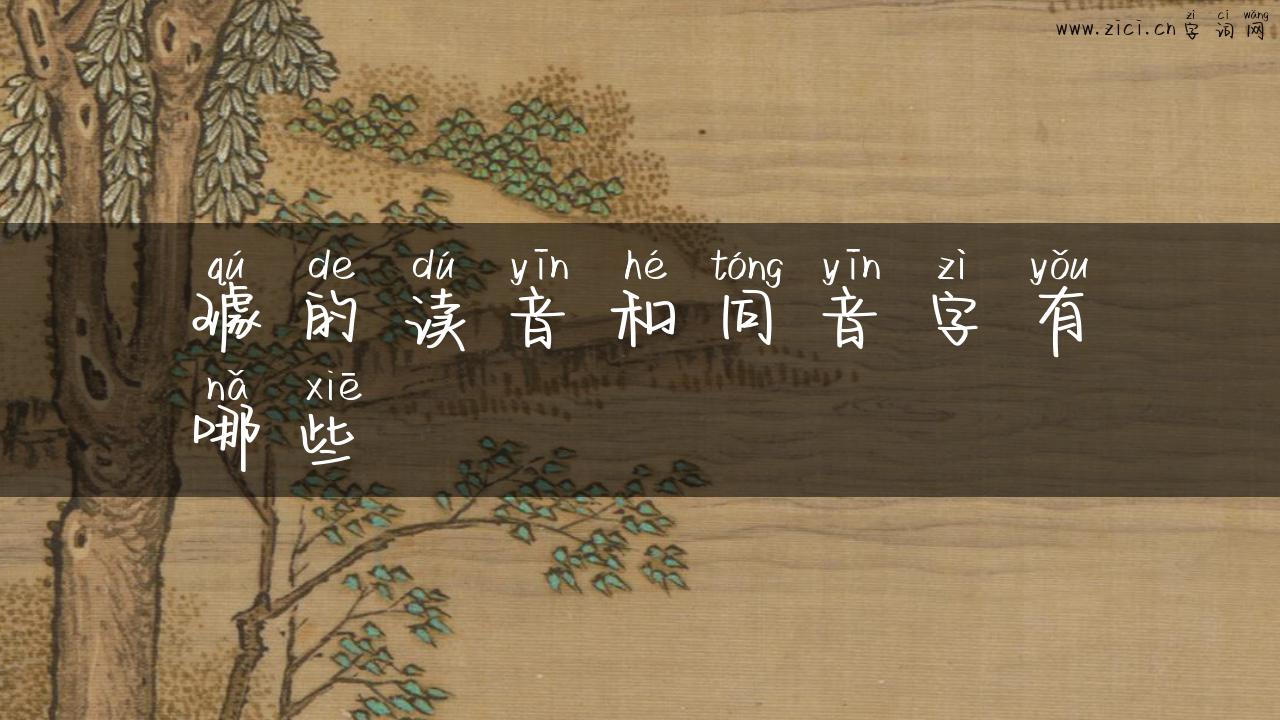 zì cí wǎng
www.zici.cn 字词网
qú de dú yīn hé tóng yīn zì yǒu
璩的读音和同音字有
nǎ xiē
哪些